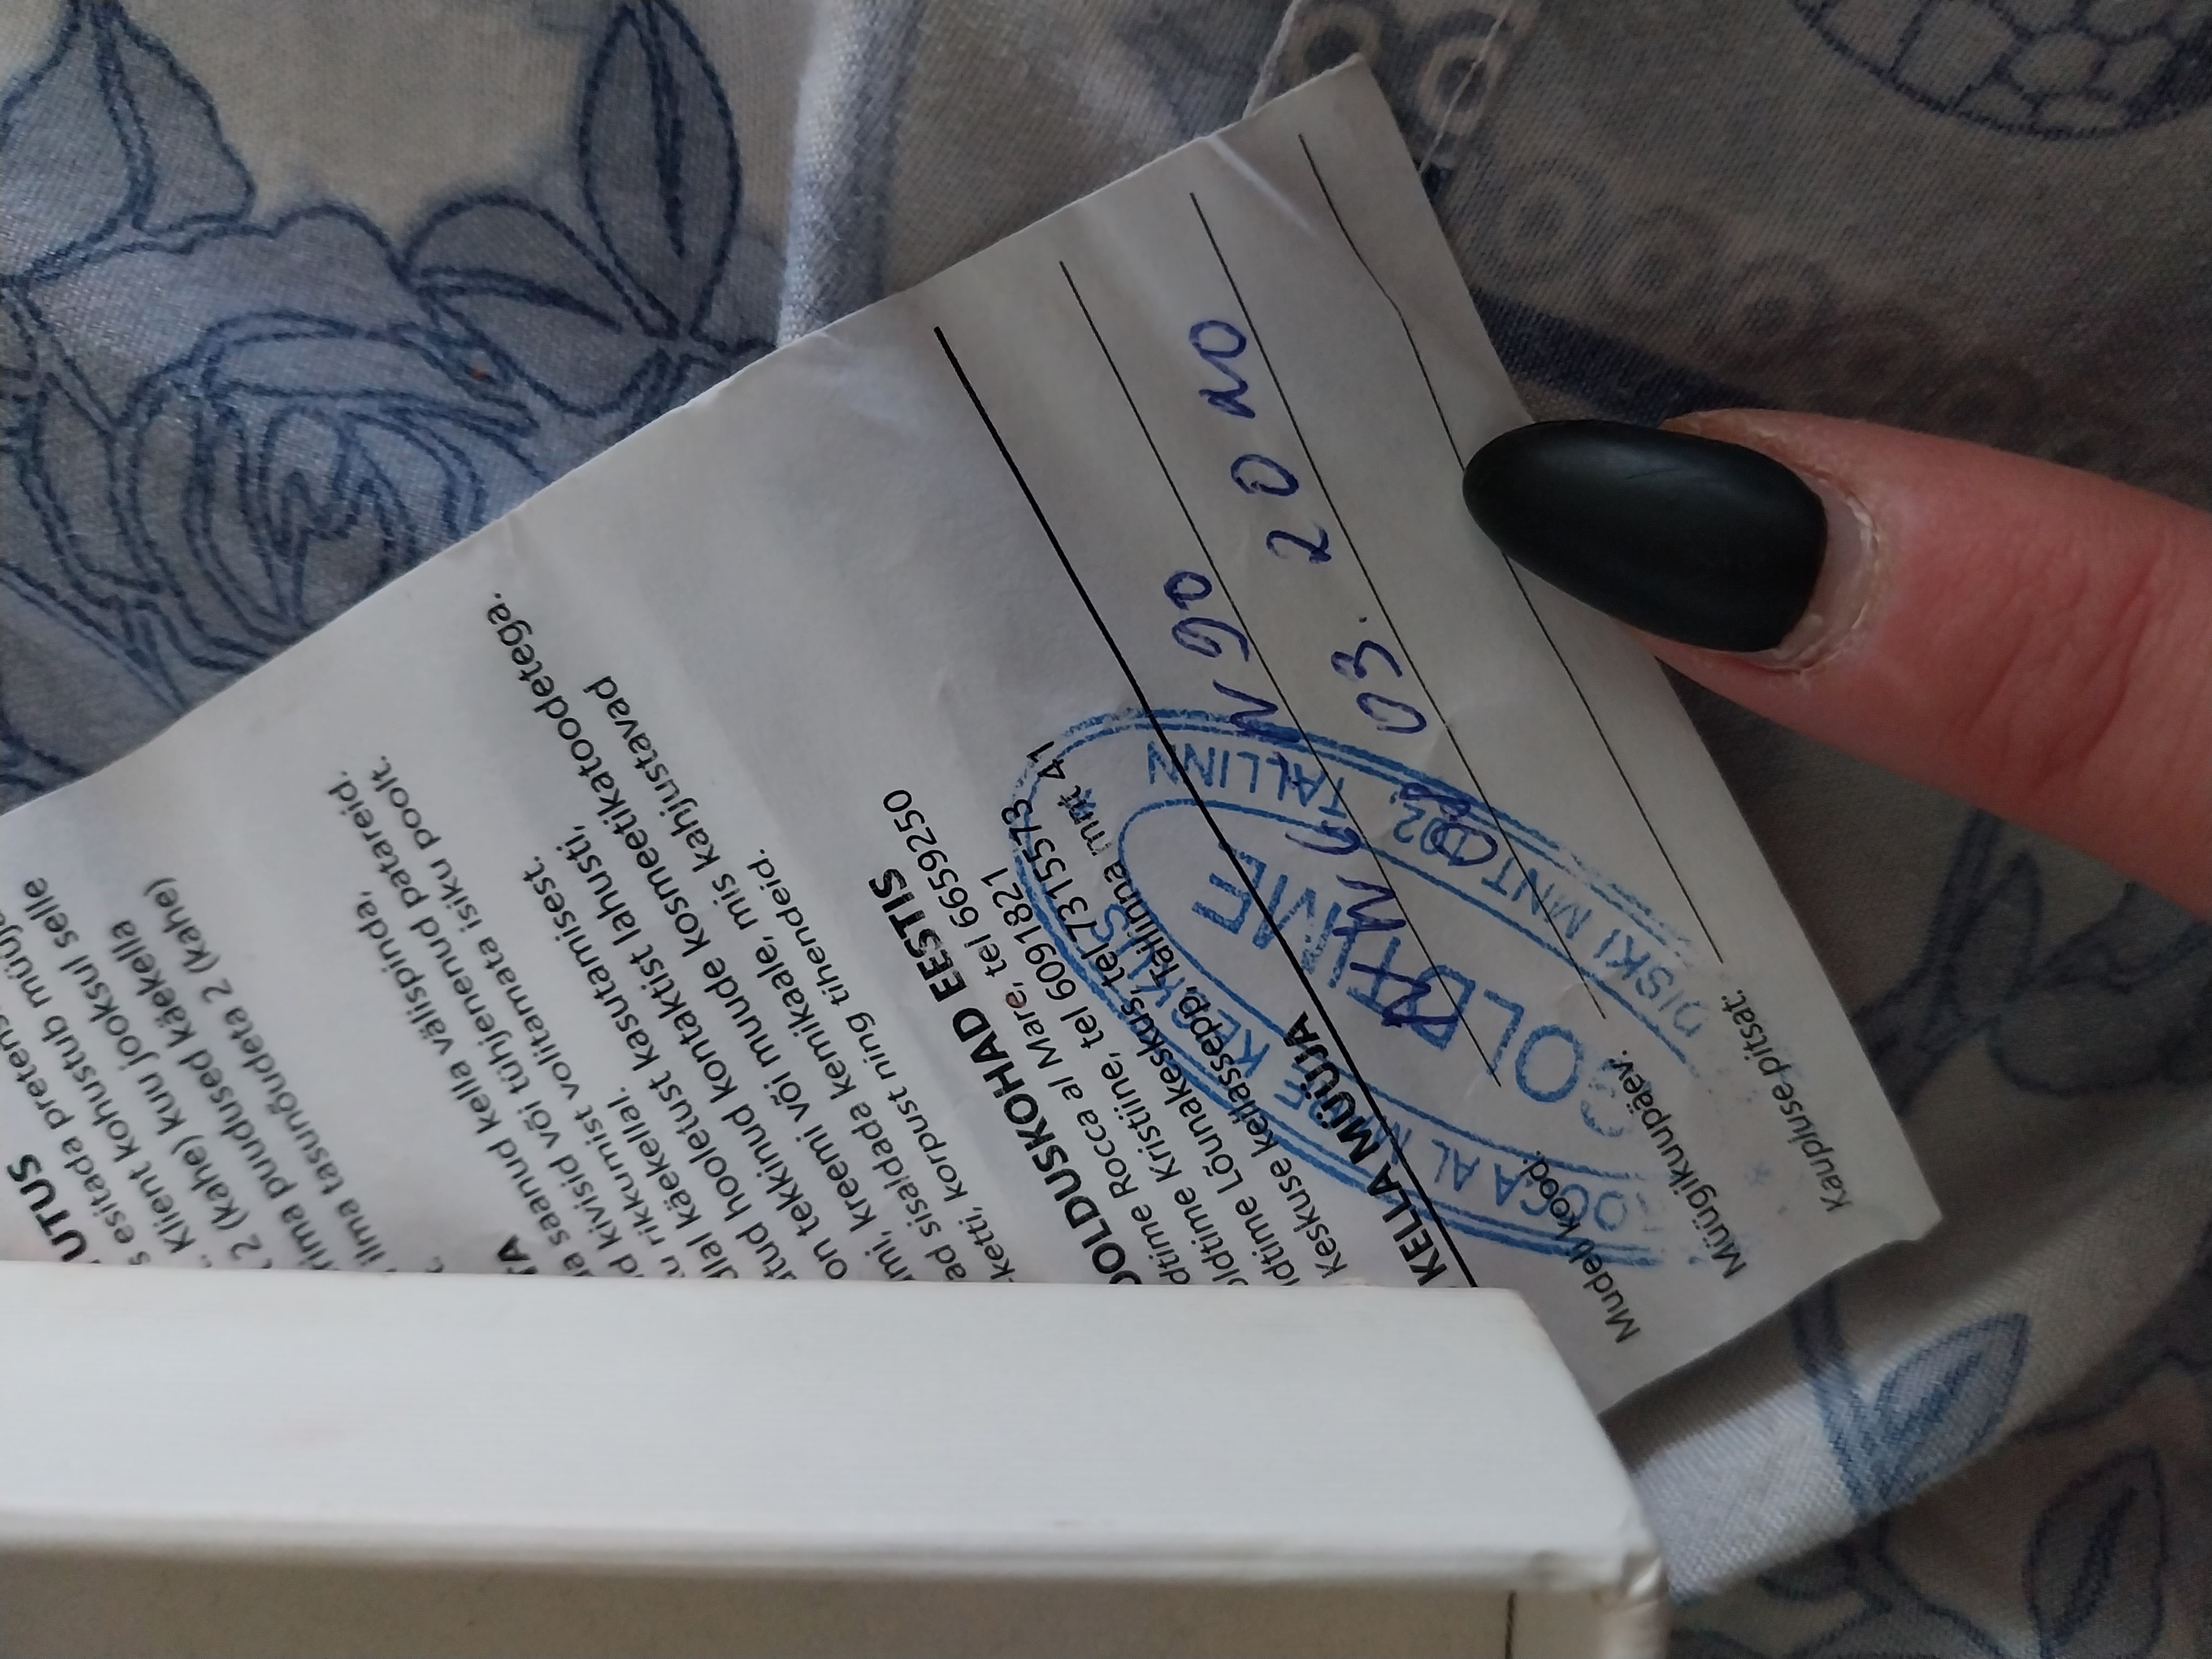 UTUS
s esitada pretens
. Klient kohustub müüja
2 (kahe) kuu jooksul selle
rima puudused käekella
ilma tasunõudeta 2 (kahe)
t.
TA
a saanud kella välispinda,
d kivisid või tühjenenud patareid.
u rikkumist volitamata isiku poolt.
dlal käekellal.
tud hooletust kasutamisest.
on tekkinud kontaktist lahusti,
mi, kreemi või muude kosmeetikatoodetega.
ad sisaldada kemikaale, mis kahjustavad
-ketti, korpust ning tihendeid.
OOLDUSKOHAD EESTIS
dtime Rocca al Mare, tel 6659250
oldtime Kristiine, tel 6091821
ldtime Lõunakeskus, tel 7315573
Keskuse kellassepp, Tallinna mnt 41
KELLA MÜÜJA
Mudeli kood: N90
Müügikuupäev: 03. 2020
Kaupluse pitsat:
ROCCA AL MARE KESKUS
GOLDTIME
DISKI MNT 102, TALLINN